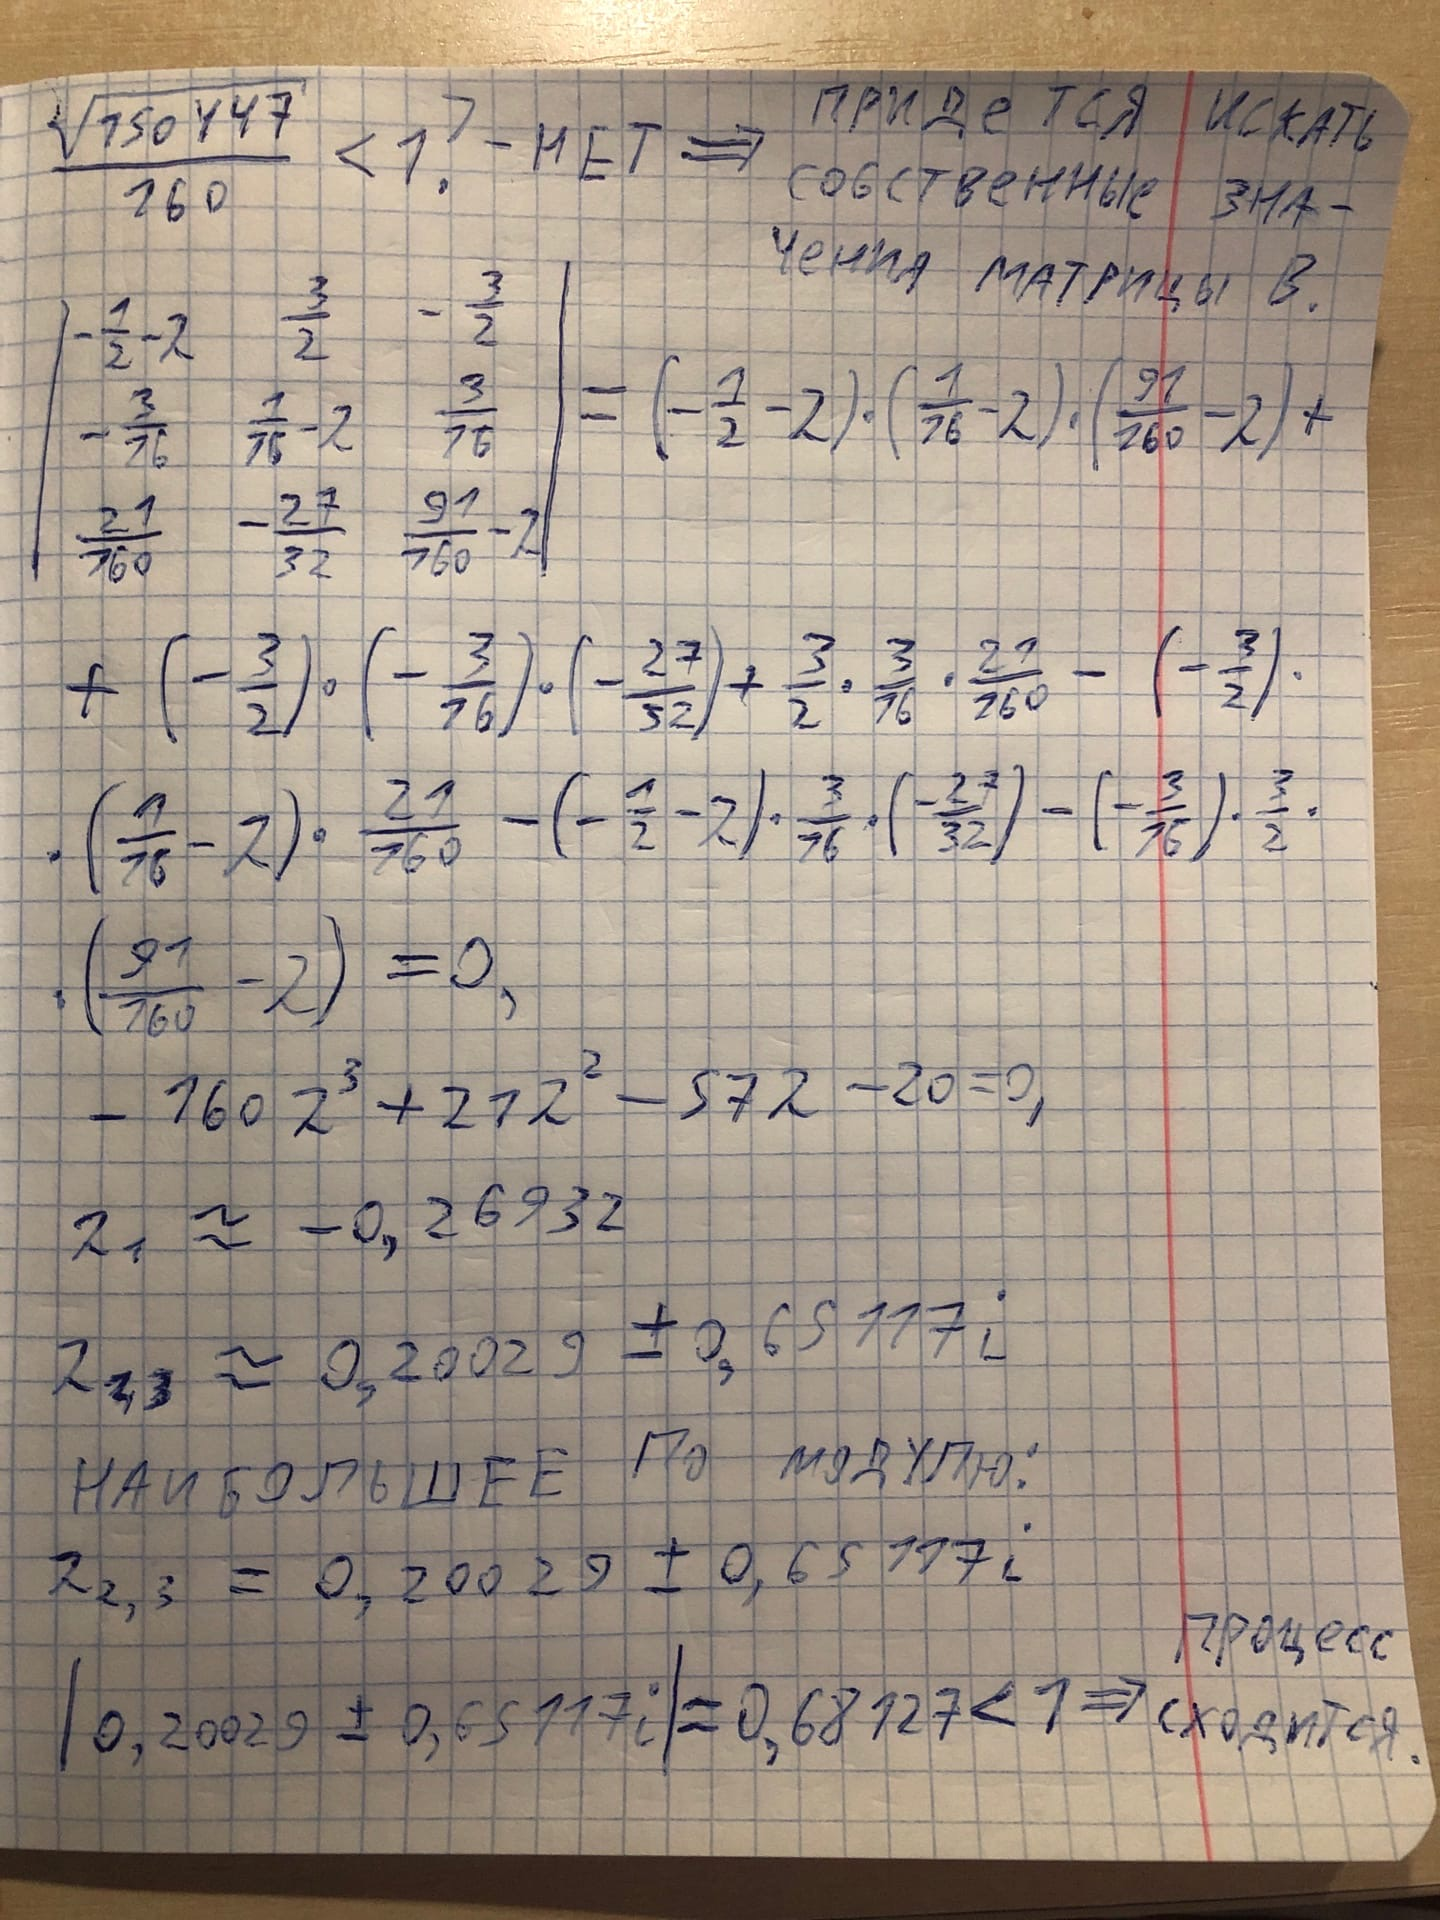 √150447/160 < 1? - НЕТ ⇒ ПРИДЕТСЯ ИСКАТЬ
СОБСТВЕННЫЕ ЗНА-
ЧЕНИЯ МАТРИЦЫ B.
| -1/2-λ 3/2 -3/2 |
| -3/16 1/16-λ 3/16 | = (-1/2-λ)·(1/16-λ)·(91/160-λ)+
| 21/160 -27/32 91/160-λ |
+ (-3/2)·(-3/16)·(-27/32)+ 3/2·3/16·21/160 - (-3/2)·
·(1/16-λ)·21/160 -(-1/2-λ)·3/16·(-27/32)-(-3/16)·3/2·
·(91/160-λ) =0,
- 160λ³+21λ²-57λ-20=0,
λ₁ ≈ -0,26932
λ₂,₃ ≈ 0,20029 ± 0,65117i
НАИБОЛЬШЕЕ ПО МОДУЛЮ:
λ₂,₃ = 0,20029 ± 0,65117i
|0,20029 ± 0,65117i|=0,68127<1⇒ ПРОЦЕСС
СХОДИТСЯ.